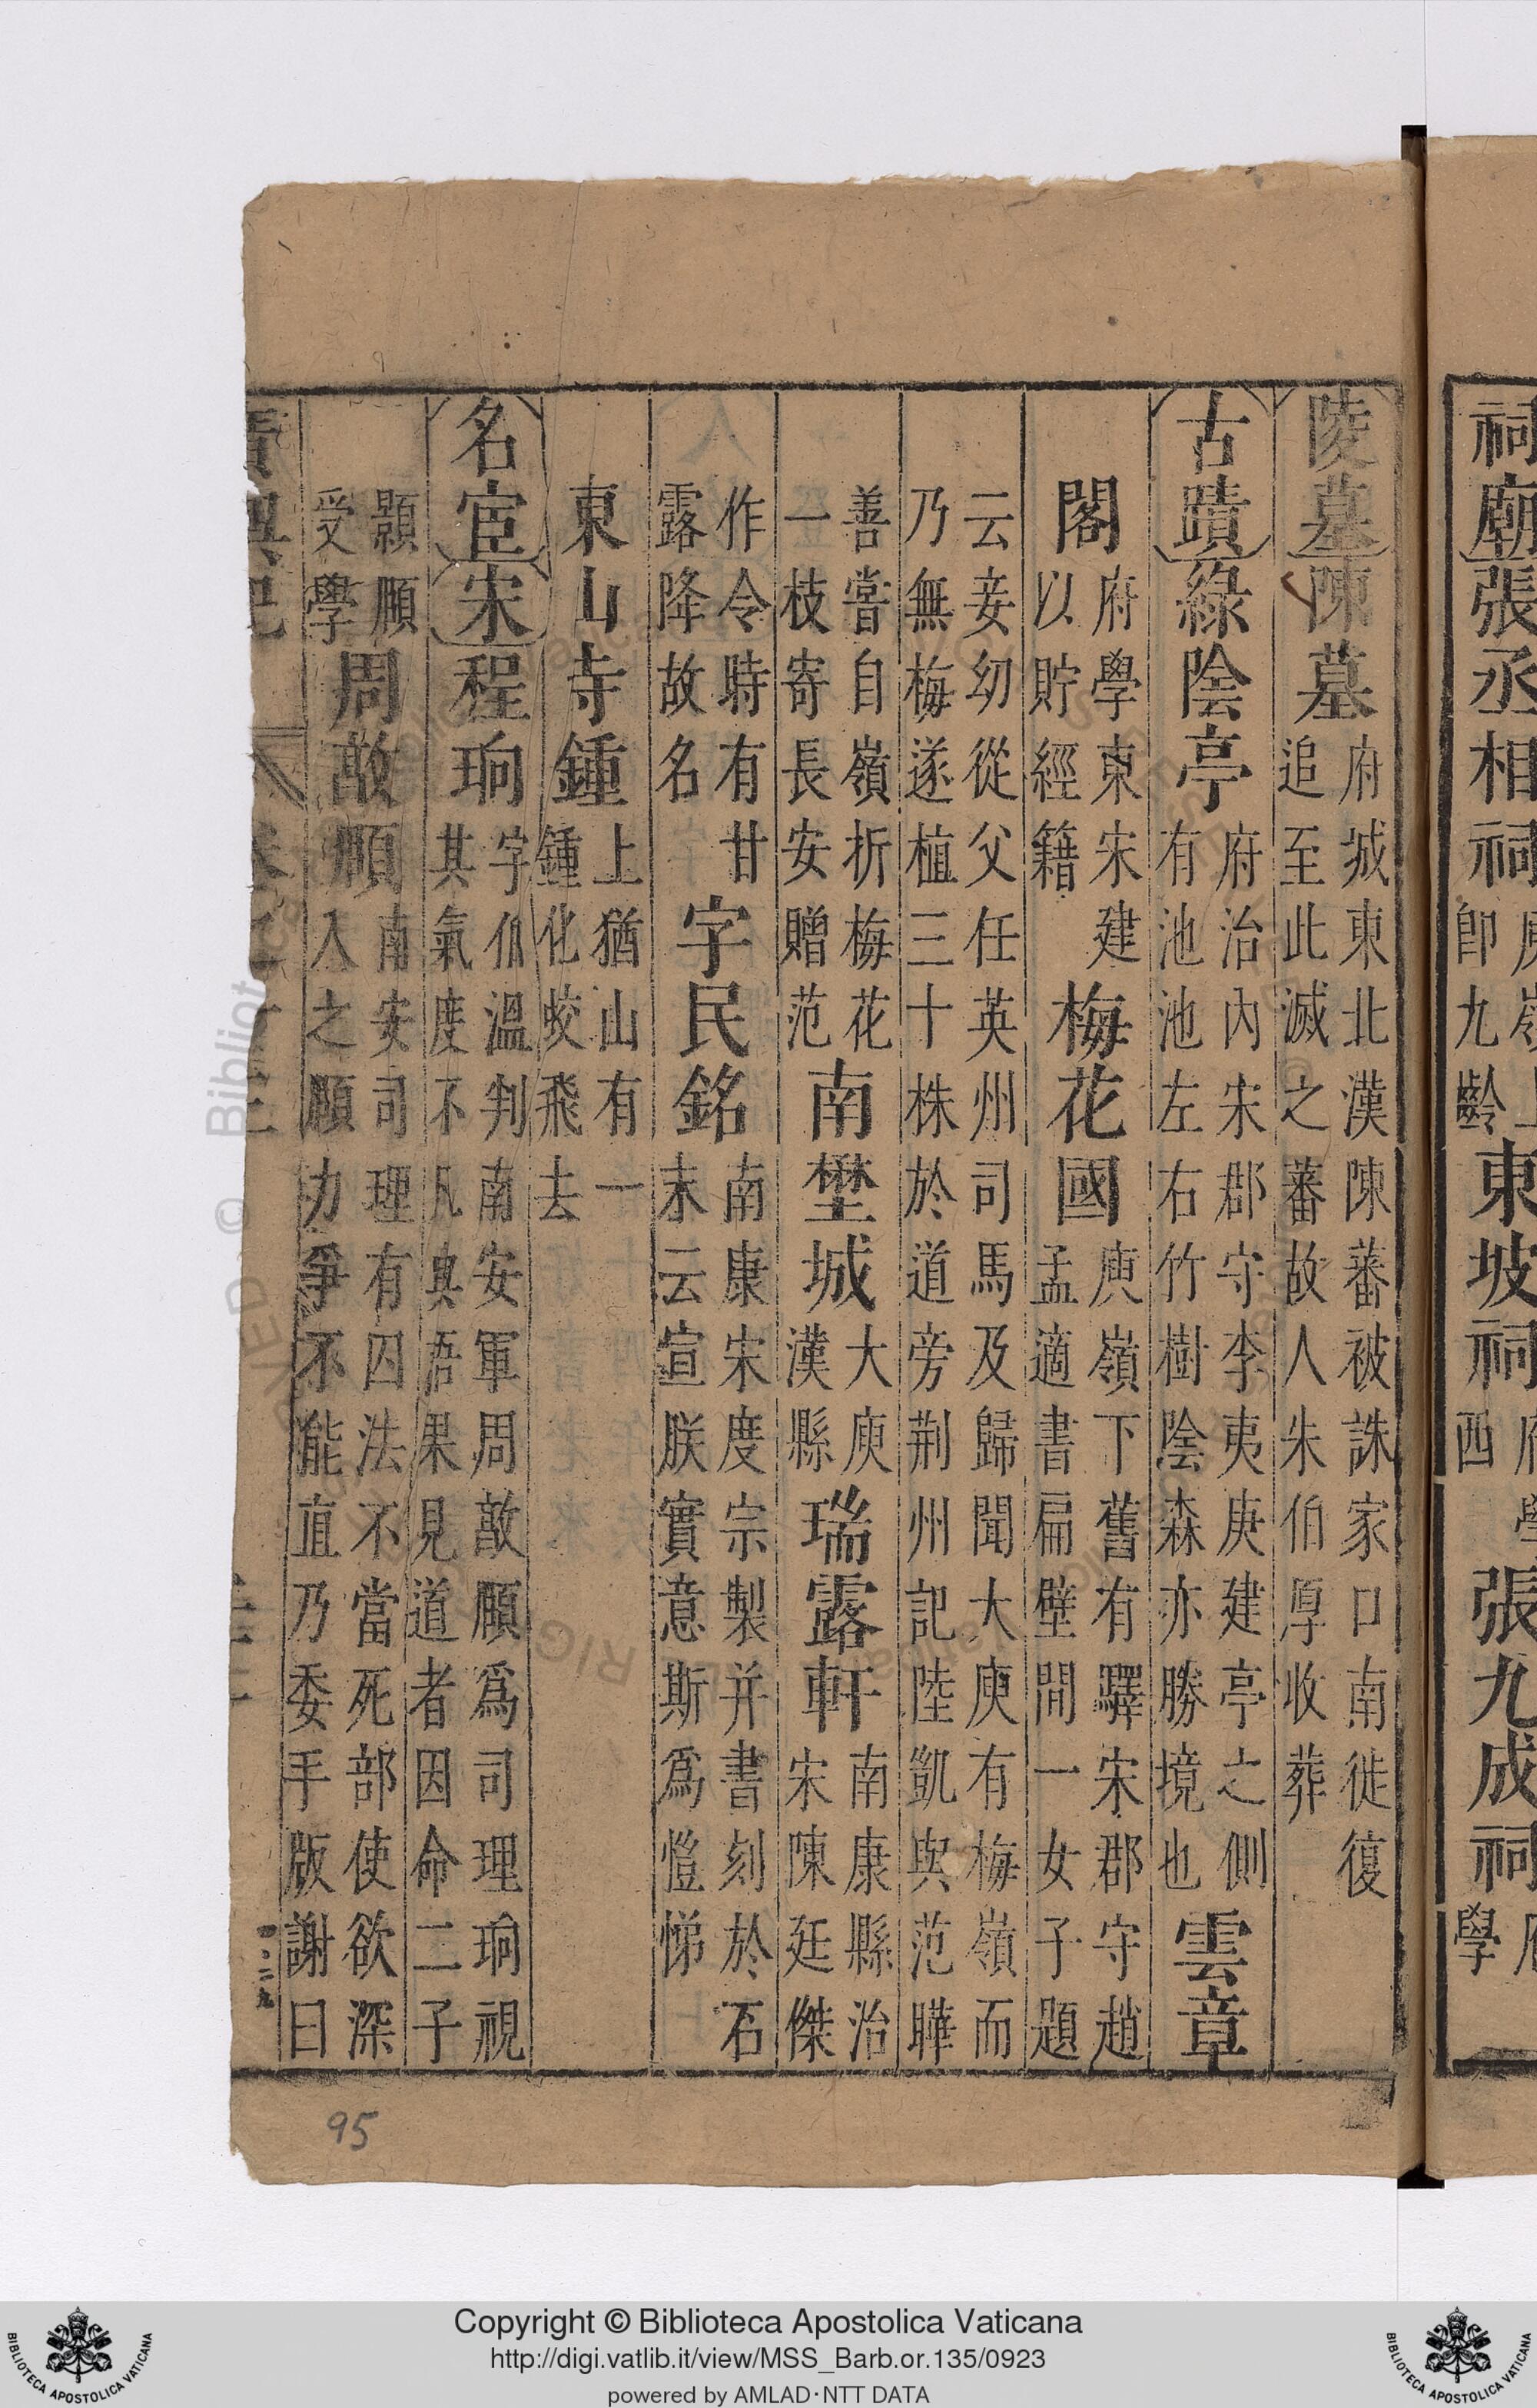 祠廟張丞相祠
卽九齡
東坡祠
西
張九成祠
學
陵墓陳墓
府城東北漢陳蕃被誅家口南徙復
追至此滅之蕃故人朱伯厚收葬
古蹟綠陰亭
府治內宋郡守李夷庚建亭之側
有池池左右竹樹陰森亦勝境也
雲章
閣
府學東宋建
以貯經籍
梅花國
庾嶺下舊有驛宋郡守趙
孟適書扁壁間一女子題
云妾幼從父任英州司馬及歸聞大庾有梅嶺而
乃無梅遂植三十株於道旁荆州記陸凱與范曄
善嘗自嶺折梅花
一枝寄長安贈范
南壄城
大庾
漢縣
瑞露軒
南康縣治
宋陳廷傑
作令時有甘
露降故名
字民銘
南康宋度宗製并書刻於石
末云宣朕實意斯爲愷悌
東山寺鍾
上猶山有一
鍾化蛟飛去
名宦宋程珦
字伯溫判南安軍周敦頤爲司理珦視
其氣度不凡與語果見道者因命二子
顥頤
受學
周敦頤
南安司理有囚法不當死部使欲深
入之頤力爭不能直乃委手版謝曰
四二九
95
Copyright © Biblioteca Apostolica Vaticana
http://digi.vatlib.it/view/MSS_Barb.or.135/0923
powered by AMLAD·NTT DATA
BIBLIOTECA APOSTOLICA VATICANA
BIBLIOTECA APOSTOLICA VATICANA